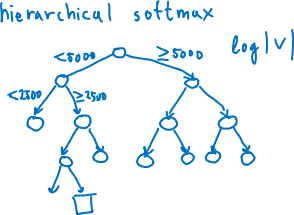 hierarchical softmax
<5000 ≥5000 log|V|
<2500 ≥2500